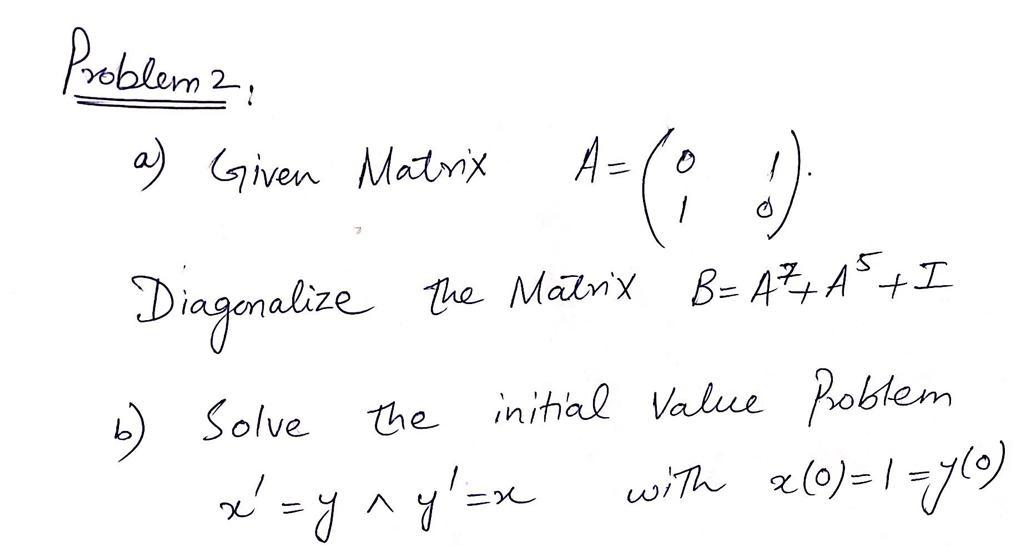 Problem 2.
a) Given Matrix A = ( 0 1
1 0 ).
Diagonalize the Matrix B = A⁷ + A⁵ + I
b) Solve the initial Value Problem
x' = y ∧ y' = x with x(0) = 1 = y(0)